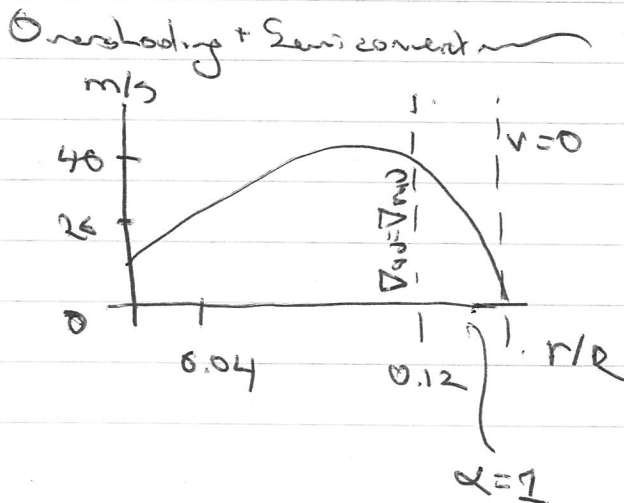 Overshooting + Semiconvection
m/s
40
20
0
v=0
∇ad=∇rad
0.04
0.12
r/R
α=1